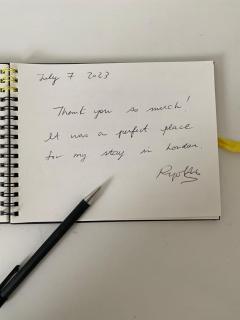 July 7 2023
Thank you so much!
It was a perfect place
for my stay in London.